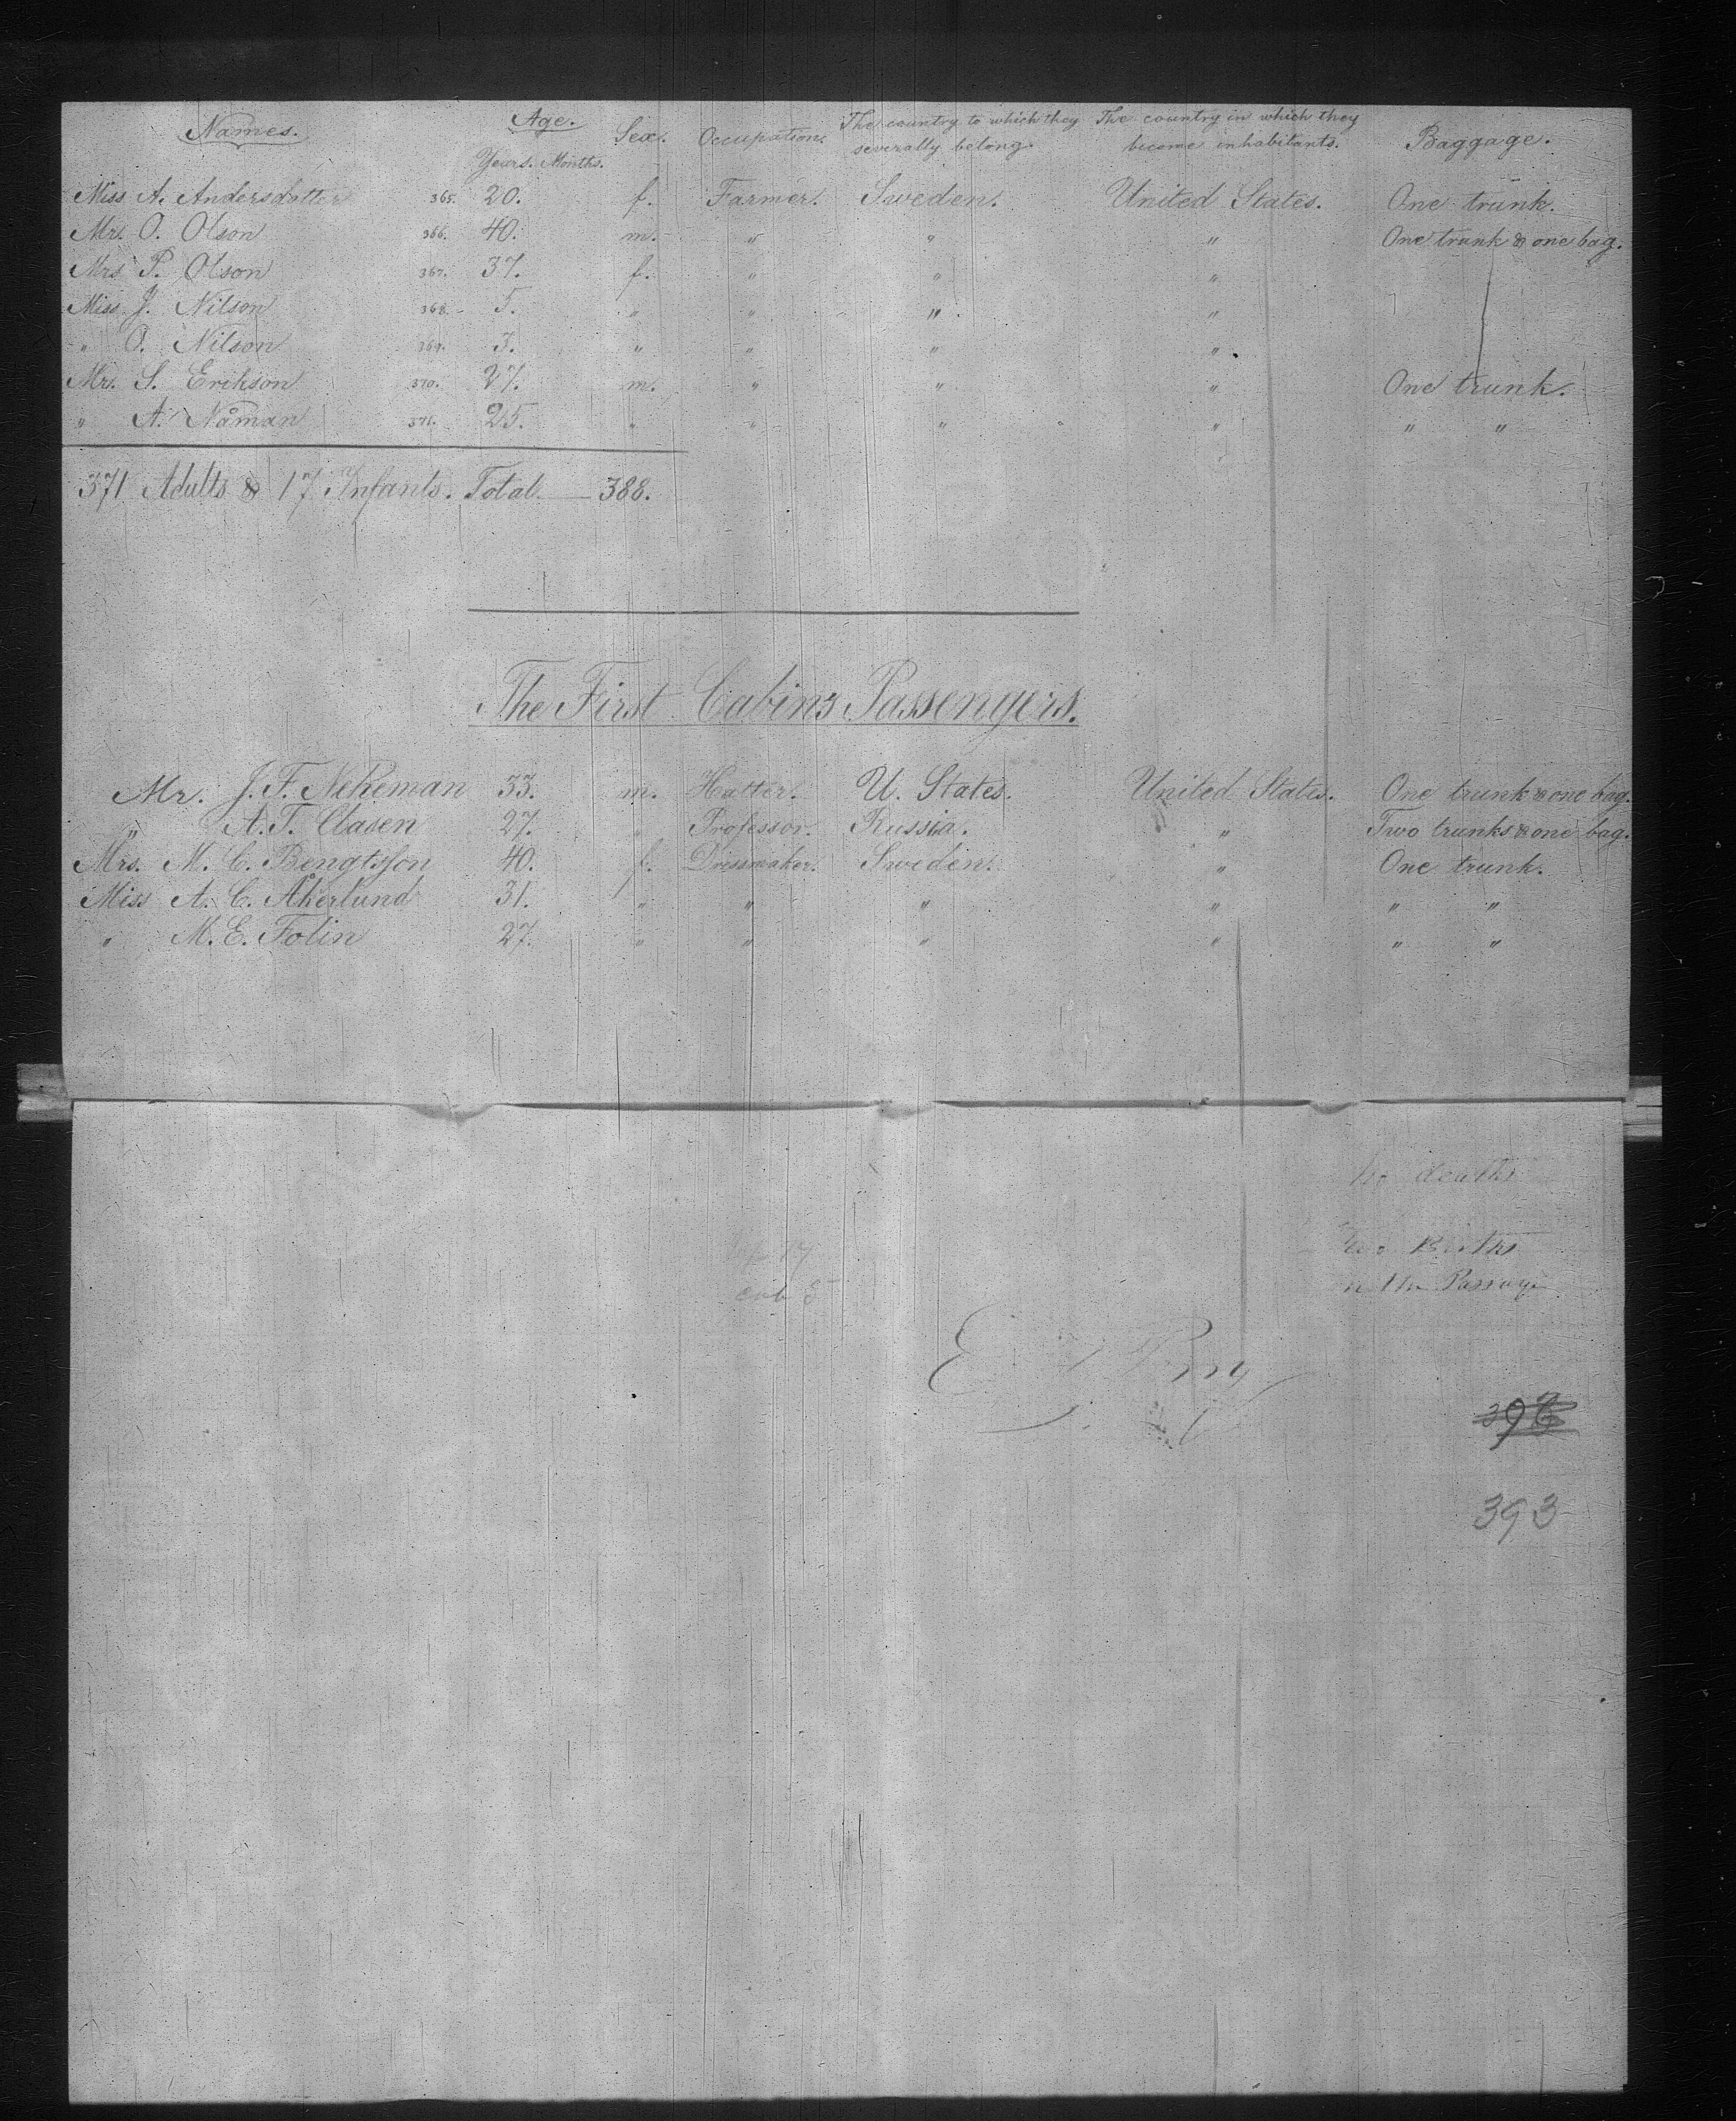 Names. Age. Sex. Occupation. The country to which they severally belong. The country in which they become inhabitants. Baggage.
Years. Months.
Miss A. Andersdotter 365. 20. f. Farmer. Sweden. United States. One trunk.
Mr. O. Olson 366. 40. m. " " " One trunk & one bag.
Mrs. P. Olson 367. 37. f. " " "
Miss J. Nilson 368. 5. " " " "
" O. Nilson 369. 3. " " " "
Mr. S. Erikson 370. 27. m. " " " One trunk.
" A. Nåman 371. 25. " " " " " "
371 Adults & 17 Infants. Total — 388.
The First Cabins Passengers.
Mr. J. F. Nekeman 33. m. Hatter. U. States. United States. One trunk & one bag.
" A. T. Clasen 27. " Professor. Russia. " Two trunks & one bag.
Mrs. M. C. Bengtsson 40. f. Dressmaker. Sweden. " One trunk.
Miss A. C. Åkerlund 31. " " " " " "
" M. E. Folin 27. " " " " " "
No deaths
Births
Passage
17
cab 5
393